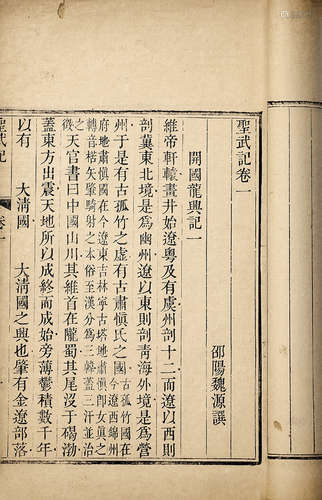 聖武記卷一
邵陽魏源譔
開國龍興記一
維帝軒轅畫井始遼粵及有虞州剖十二而遼以西則
剖冀東北境是爲幽州遼以東則剖青海外境是爲營
州于是有古孤竹之虛有古肅愼氏之國古孤竹國在今遼西錦州
府地肅愼國在今遼東吉林寧古塔地肅愼卽女眞之
轉音楛矢肇騎射之本俗至漢分爲三韓蓋三汗並治
之天官書曰中國山川其維首在隴蜀其尾沒于碣渤
蓋東方出震天地所以成終而成始旁薄鬱積數千年
以有 大淸國 大淸國之興也肇有金遼部落
聖武記 卷一